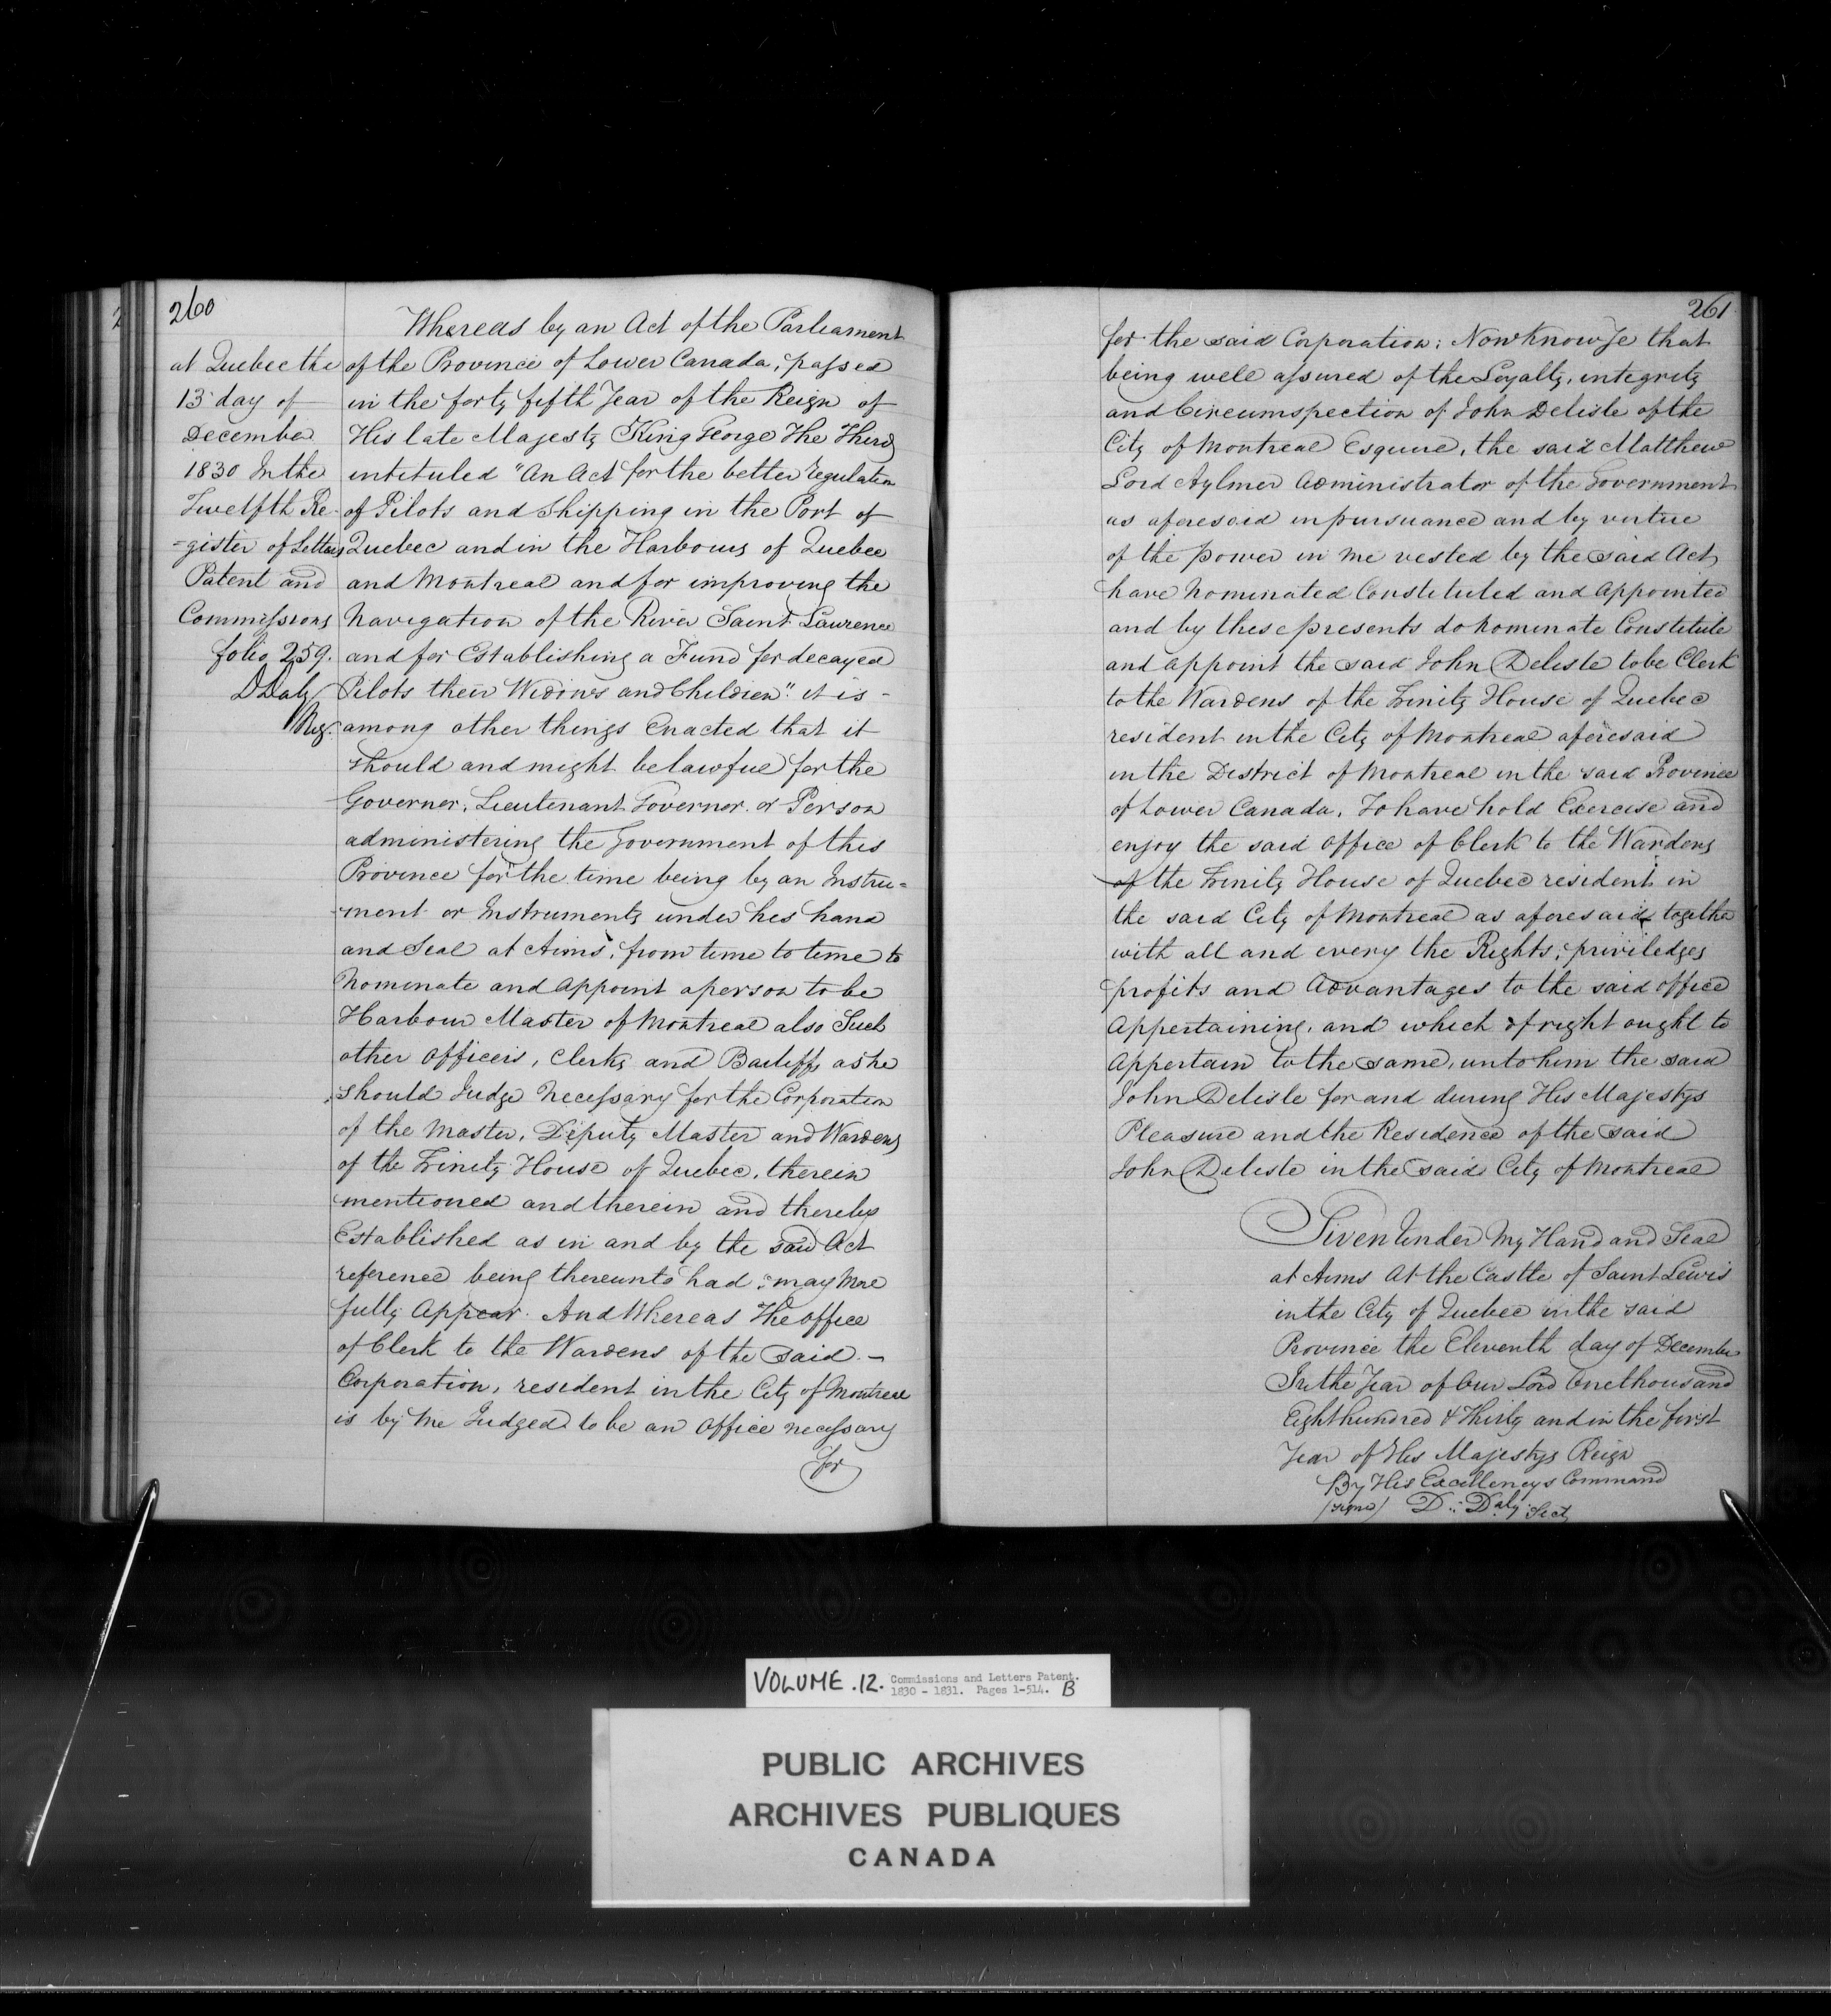 260
at Quebec the
13 day of
December
1830 In the
Twelfth Re-
-gister of Letters
Patent and
Commissions
folio 259.
D Daly
Reg.
Whereas by an Act of the Parliament
of the Province of Lower Canada, passed
in the forty fifth Year of the Reign of
His late Majesty King George The Third
intituled "An Act for the better regulation
of Pilots and Shipping in the Port of
Quebec and in the Harbours of Quebec
and Montreal and for improving the
Navigation of the River Saint Laurence
and for Establishing a Fund for decayed
Pilots their Widows and Children". it is -
among other things Enacted that it
should and might be lawful for the
Governor, Lieutenant Governor or Person
administering the Government of this
Province for the time being by an Instru-
-ment or Instruments under his hand
and Seal at Arms, from time to time to
Nominate and appoint a person to be
Harbour Master of Montreal also Such
other officers, Clerks and Bailiffs as he
should Judge Necessary for the Corporation
of the Master, Deputy Master and Wardens
of the Trinity House of Quebec, therein
mentioned and therein and thereby
Established as in and by the said Act
reference being thereunto had, may More
fully Appear. And Whereas The office
of Clerk to the Wardens of the said -
Corporation, resident in the City of Montreal
is by Me Judged to be an office necessary
for
261
for the said Corporation; Now Know Ye that
being well assured of the Loyalty, integrity
and Circumspection of John Delisle of the
City of Montreal Esquire, the said Matthew
Lord Aylmer Administrator of the Government
as aforesaid in pursuance and by virtue
of the power in me vested by the said Act
have Nominated Constituted and Appointed
and by these presents do Nominate Constitute
and appoint the said John Delisle to be Clerk
to the Wardens of the Trinity House of Quebec
resident in the City of Montreal aforesaid
in the District of Montreal in the said Province
of Lower Canada, To have hold Exercise and
enjoy the said office of Clerk to the Wardens
of the Trinity House of Quebec resident in
the said City of Montreal as aforesaid, together
with all and every the Rights, priviledges
profits and Advantages to the said office
Appertaining, and which of right ought to
Appertain to the same, unto him the said
John Delisle for and during His Majestys
Pleasure and the Residence of the said
John Delisle in the said City of Montreal
Given Under My Hand and Seal
at Arms At the Castle of Saint Lewis
in the City of Quebec in the said
Province the Eleventh day of December
In the Year of Our Lord One thousand
Eight hundred & Thirty and in the first
Year of His Majestys Reign
By His Excellencys Command
(signed) D. Daly Secty
VOLUME .12. Commissions and Letters Patent.
1830 - 1831. Pages 1-514. B
PUBLIC ARCHIVES
ARCHIVES PUBLIQUES
CANADA